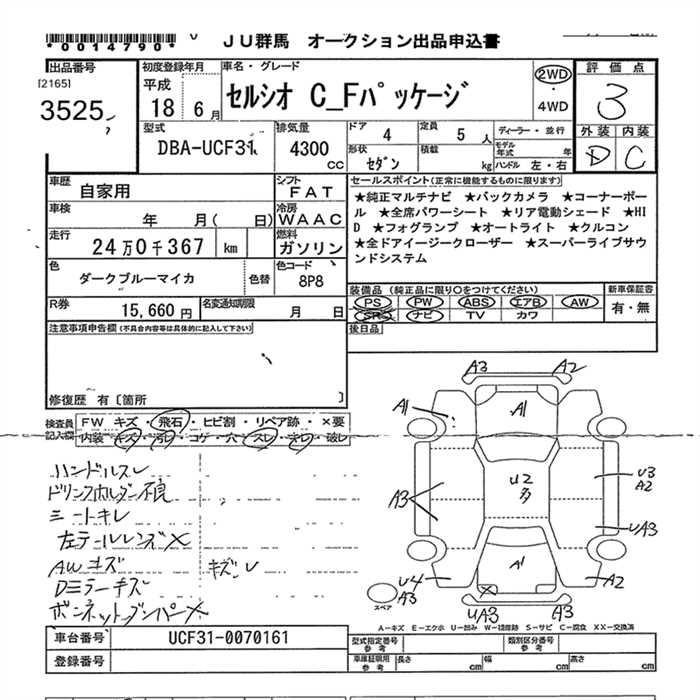 *0014790*
JU群馬 オークション出品申込書
出品番号
[2165]
3525
初度登録年月
平成
18 6月
車名・グレード
セルシオ C_Fパッケージ
2WD
・
4WD
評価点
3
外装 内装
D C
型式
DBA-UCF31
排気量
4300
cc
ドア 4
定員 5 人
ディーラー・並行
形状 セダン
積載 kg
モデル年式 年
ハンドル 左・右
車歴 自家用
シフト FAT
車検 年 月( 日)
冷房 WAAC
走行 24万0千367 km
燃料 ガソリン
色 ダークブルーマイカ
色替
色コード 8P8
R券 15,660円
名変通知期限 月 日
セールスポイント(正常に機能するものに限ります)
★純正マルチナビ ★バックカメラ ★コーナーポー
ル ★全席パワーシート ★リア電動シェード ★HI
D ★フォグランプ ★オートライト ★クルコン
★全ドアイージークローザー ★スーパーライブサウ
ンドシステム
装備品 (純正品に限り○をつけてください)
新車保証書
PS PW ABS エアB AW
SR ナビ TV カワ
有・無
後日品
注意事項申告欄(不具合内容等は具体的に記入して下さい)
修復歴 有〔箇所 〕
検査員記入欄
FW キズ・飛石・ヒビ割・リペア跡・×要
内装・キズ・汚レ・コゲ・穴・スレ・オレ・破レ
ハンドルスレ
ドリンクホルダー不良
シートキレ
左テールレンズ×
AWキズ
キズレ
Dミラーキズ
ボンネットダンパー×
A3 A2
A1 A1
U2
多
A3
U3
A2
UA3
A1
U4
A3
A2
UA3 A3
スペア
A=キズ E=エクボ U=凹み W=補修跡 S=サビ C=腐食 XX=交換済
車台番号 UCF31-0070161
登録番号
型式指定番号
参考
類別区分番号
参考
車庫証明用
参考
長さ cm
幅 cm
高さ cm